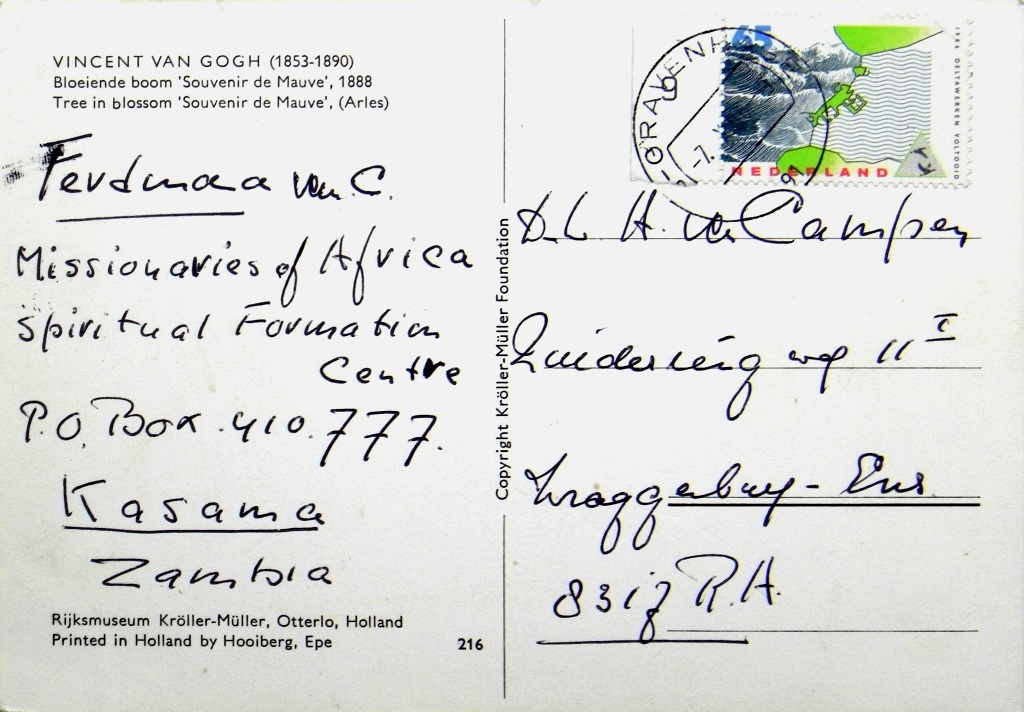 VINCENT VAN GOGH (1853-1890)
Bloeiende boom 'Souvenir de Mauve', 1888
Tree in blossom 'Souvenir de Mauve', (Arles)
van C.
Missionaries of Africa
Spiritual Formation
Centre
P.O. Box 410.777.
Kasama
Zambia
Rijksmuseum Kröller-Müller, Otterlo, Holland
Printed in Holland by Hooiberg, Epe
216
Copyright Kröller-Müller Foundation
65
NEDERLAND
1986 DELTAWERKEN VOLTOOID
H. v Campen
weg 11 I
Ens
R.A.